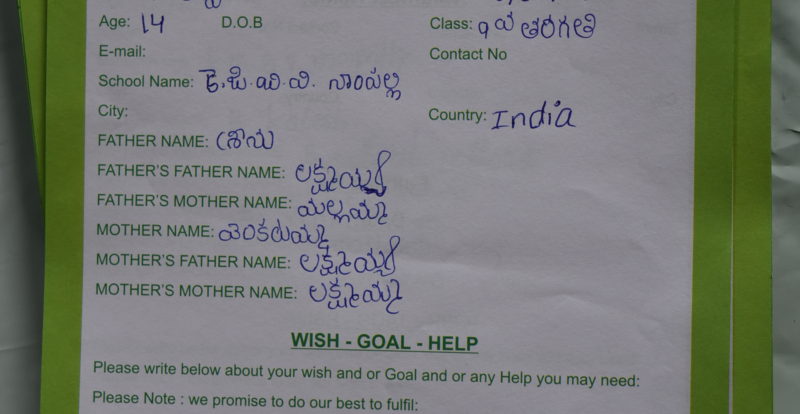 Age: 14 D.O.B Class: 9వ తరగతి
E-mail: Contact No
School Name: కె.జి.బి.వి. నాంపల్లి
City: Country: India
FATHER NAME:
FATHER'S FATHER NAME: లక్ష్మయ్య
FATHER'S MOTHER NAME: మల్లమ్మ
MOTHER NAME: వెంకటమ్మ
MOTHER'S FATHER NAME: లక్ష్మయ్య
MOTHER'S MOTHER NAME: లక్ష్మమ్మ
WISH - GOAL - HELP
Please write below about your wish and or Goal and or any Help you may need:
Please Note : we promise to do our best to fulfil: